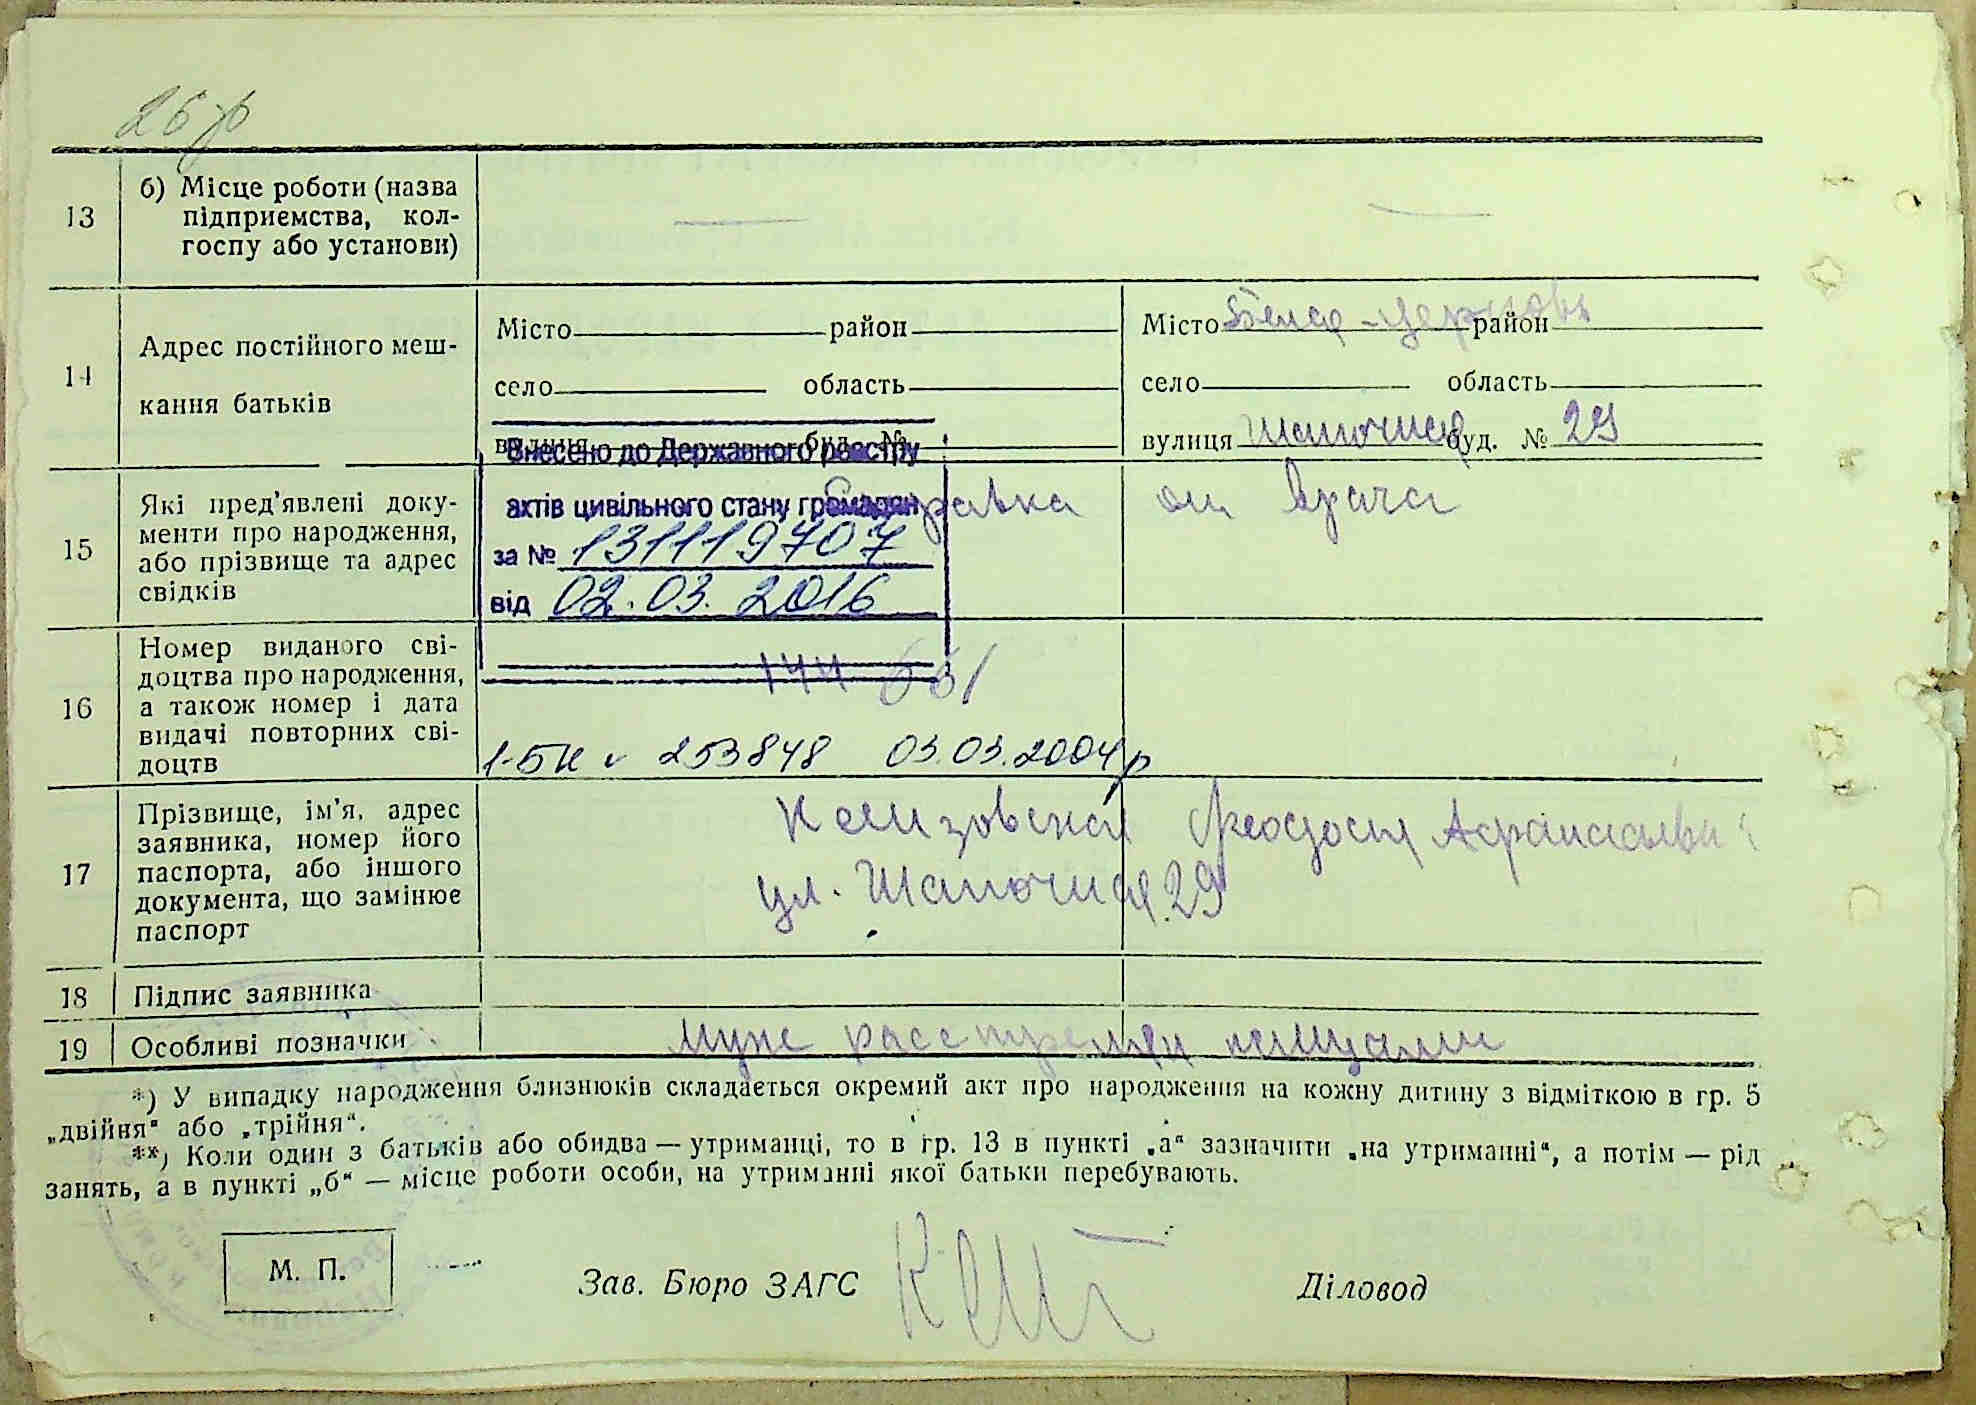 13
б) Місце роботи (назва
підприємства, кол-
госпу або установи)
14
Адрес постійного меш-
кання батьків
Місто район
село область
вулиця буд. №
Місто Белая-церковь район
село область
вулиця буд. № 29
15
Які пред'явлені доку-
менти про народження,
або прізвище та адрес
свідків
Справка от врача
Внесено до Державного реєстру
актів цивільного стану громадян
за № 131119707
від 02.03.2016
16
Номер виданого сві-
доцтва про народження,
а також номер і дата
видачі повторних сві-
доцтв
1-БК 253848 03.03.2004р
17
Прізвище, ім'я, адрес
заявника, номер його
паспорта, або іншого
документа, що замінює
паспорт
ул. 29
18
Підпис заявника
19
Особливі позначки
Муж расстрелян немцами
*) У випадку народження близнюків складається окремий акт про народження на кожну дитину з відміткою в гр. 5
„двійня“ або „трійня“.
**) Коли один з батьків або обидва — утриманці, то в гр. 13 в пункті „а“ зазначити „на утриманні“, а потім — рід
занять, а в пункті „б“ — місце роботи особи, на утриманні якої батьки перебувають.
М. П.
Зав. Бюро ЗАГС
Діловод